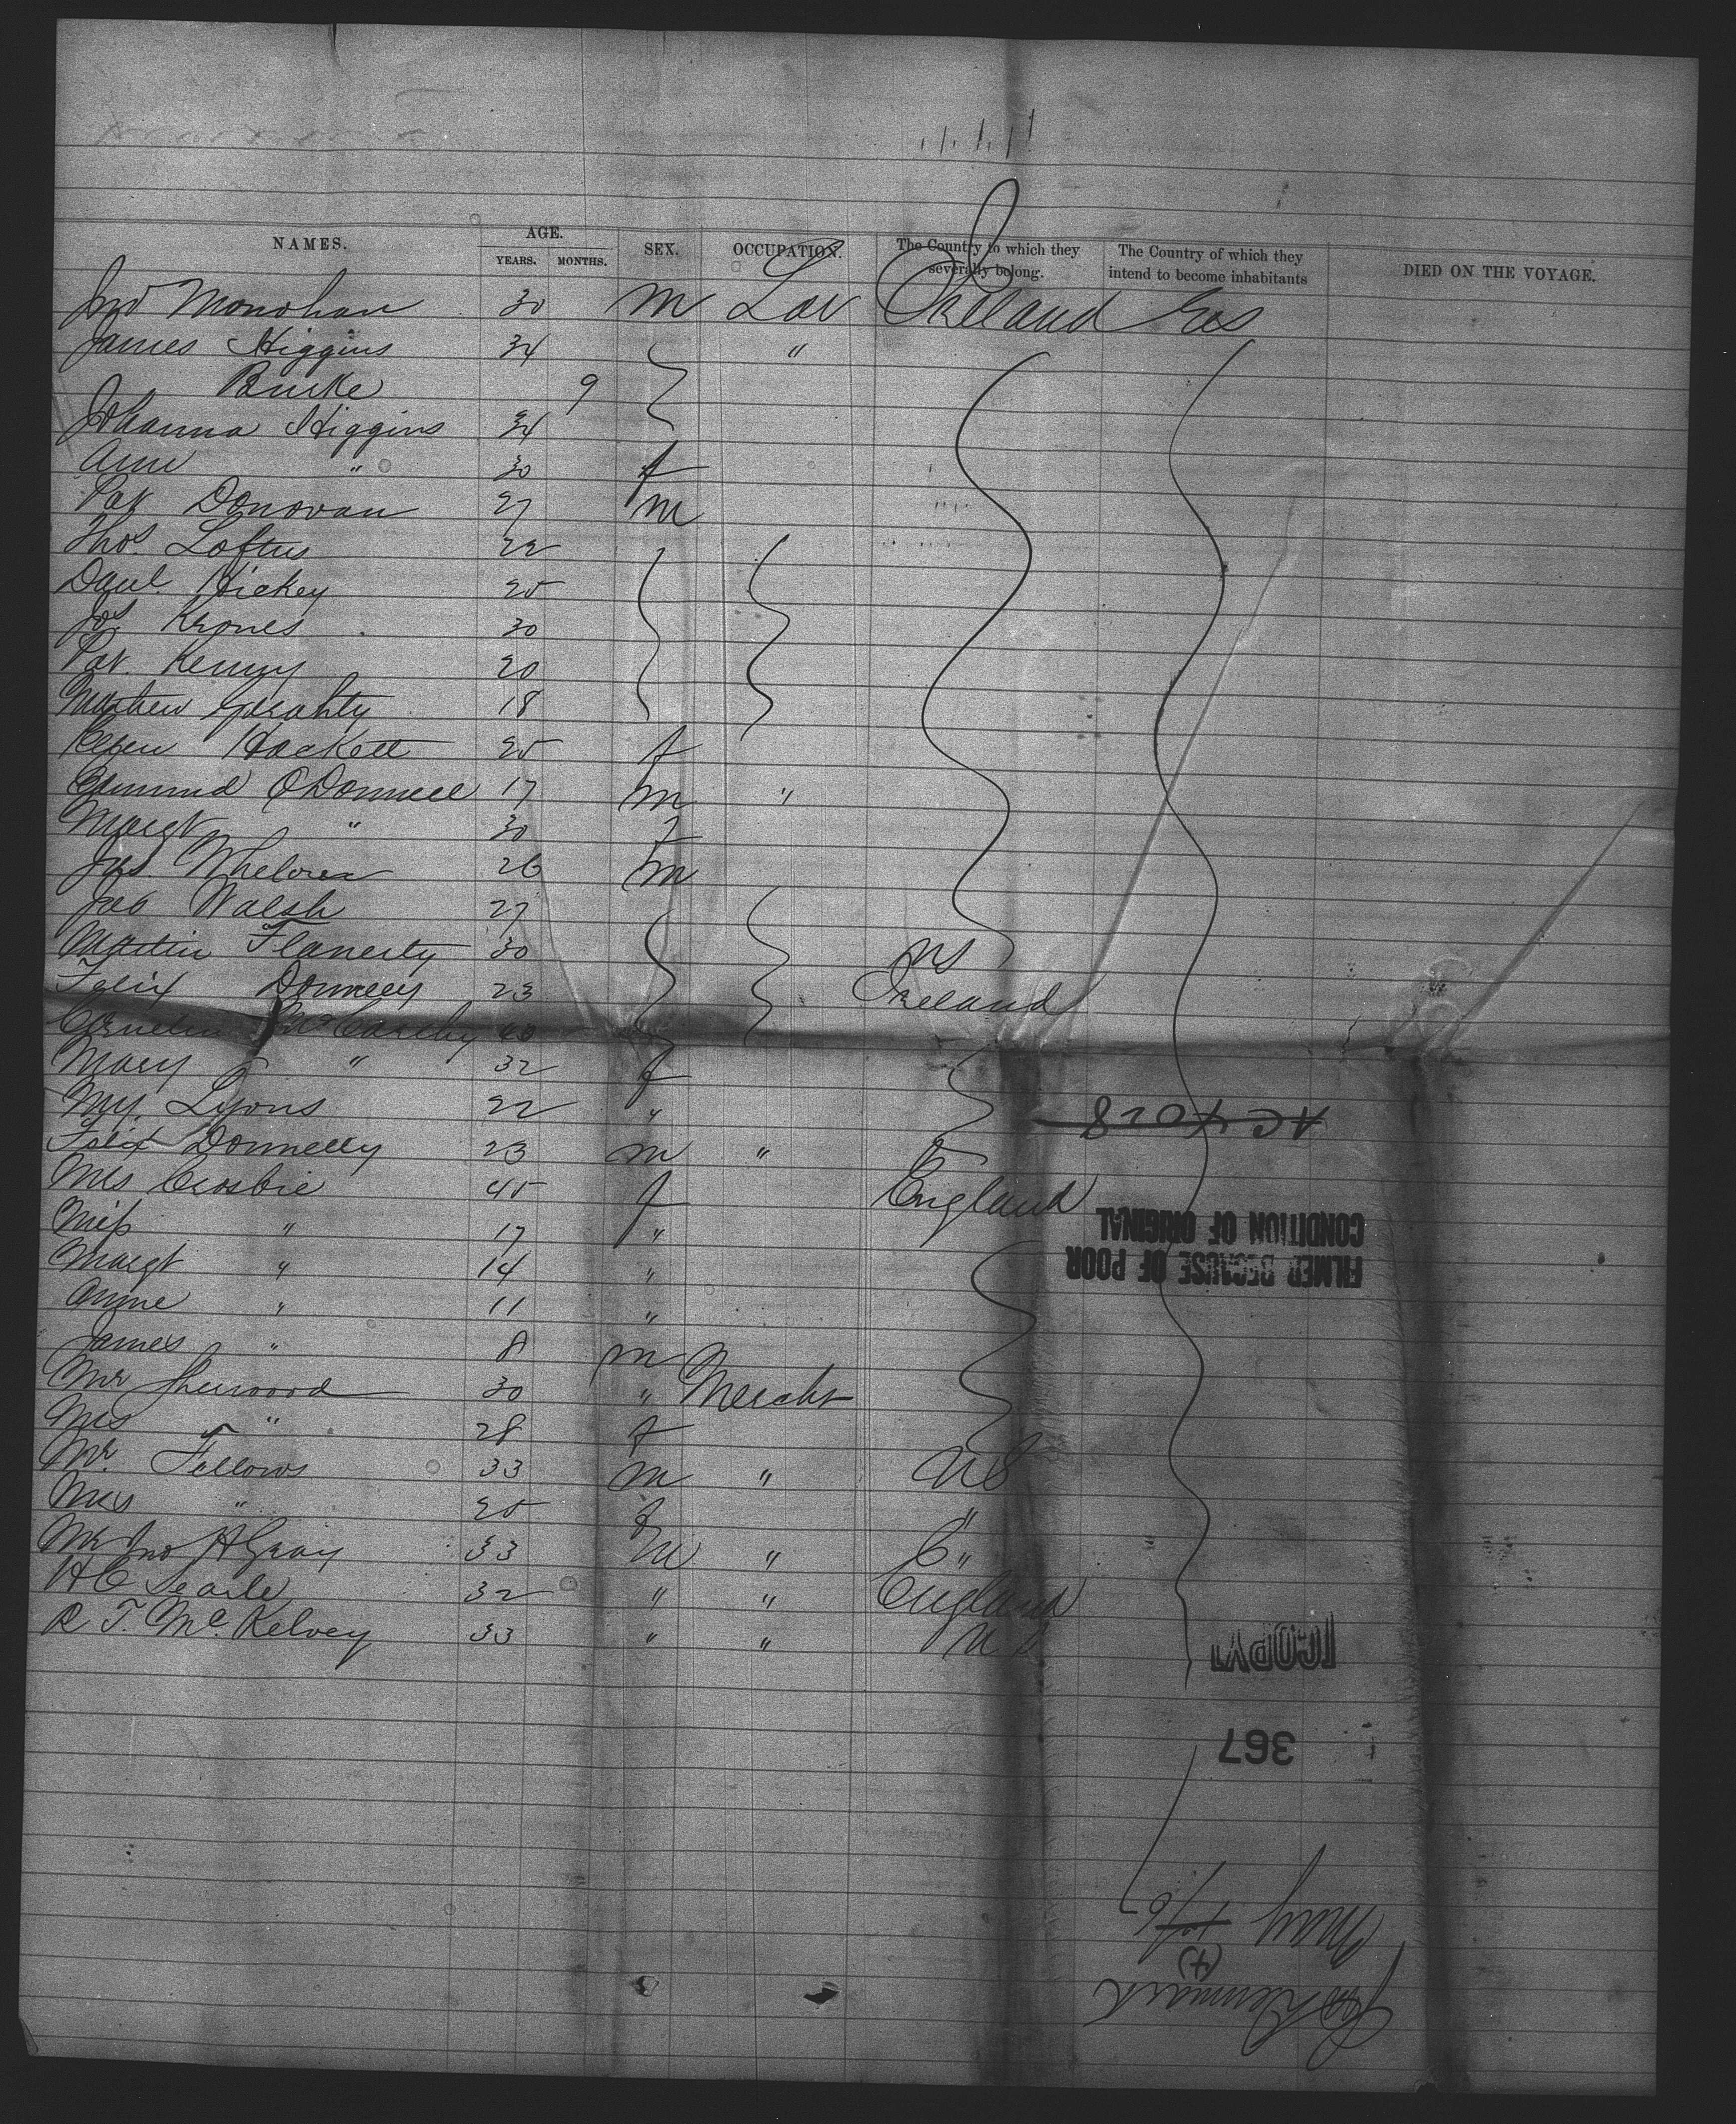 NAMES. AGE. YEARS. MONTHS. SEX. OCCUPATION. The Country to which they severally belong. The Country of which they intend to become inhabitants DIED ON THE VOYAGE.
Jno Monohan 30 m Lab Ireland
James Higgins 34 "
Burke 9
Johanna Higgins 34
Ann " 30 f
Pat Donovan 27 m
Thos. Loftus 22
Danl. Hickey 25
Jos Krones 30
Pat. Kenny 20
Mathew Gerahty 18
Ellen Hackett 25 f
Edmund O'Donnell 17 m "
Margt " 30 f
Jas. Whelan 26 m
Jas Walsh 27
Martin Flanerty 30 US
Felix Donnelly 23 Ireland
Cornelius McCarthy 40
Mary " 32 f
My. Lyons 22 "
Felix Donnelly 23 m "
Mrs Crosbie 45 f England
Miss " 17 "
Margt " 14 "
Annie " 11 "
James " 8 m
Mr Sherwood 30 " Mercht
Mrs " 28 f
Mr. Fellows 33 m " US
Mrs " 25 f "
Mr Jno H Gray 33 m " "
H C Searle 32 " " England
R T. Mc Kelvey 33 " " U S
AC 4028
FILMED BECAUSE OF POOR
CONDITION OF ORIGINAL
[COPY]
367
May
(4)
Denmark